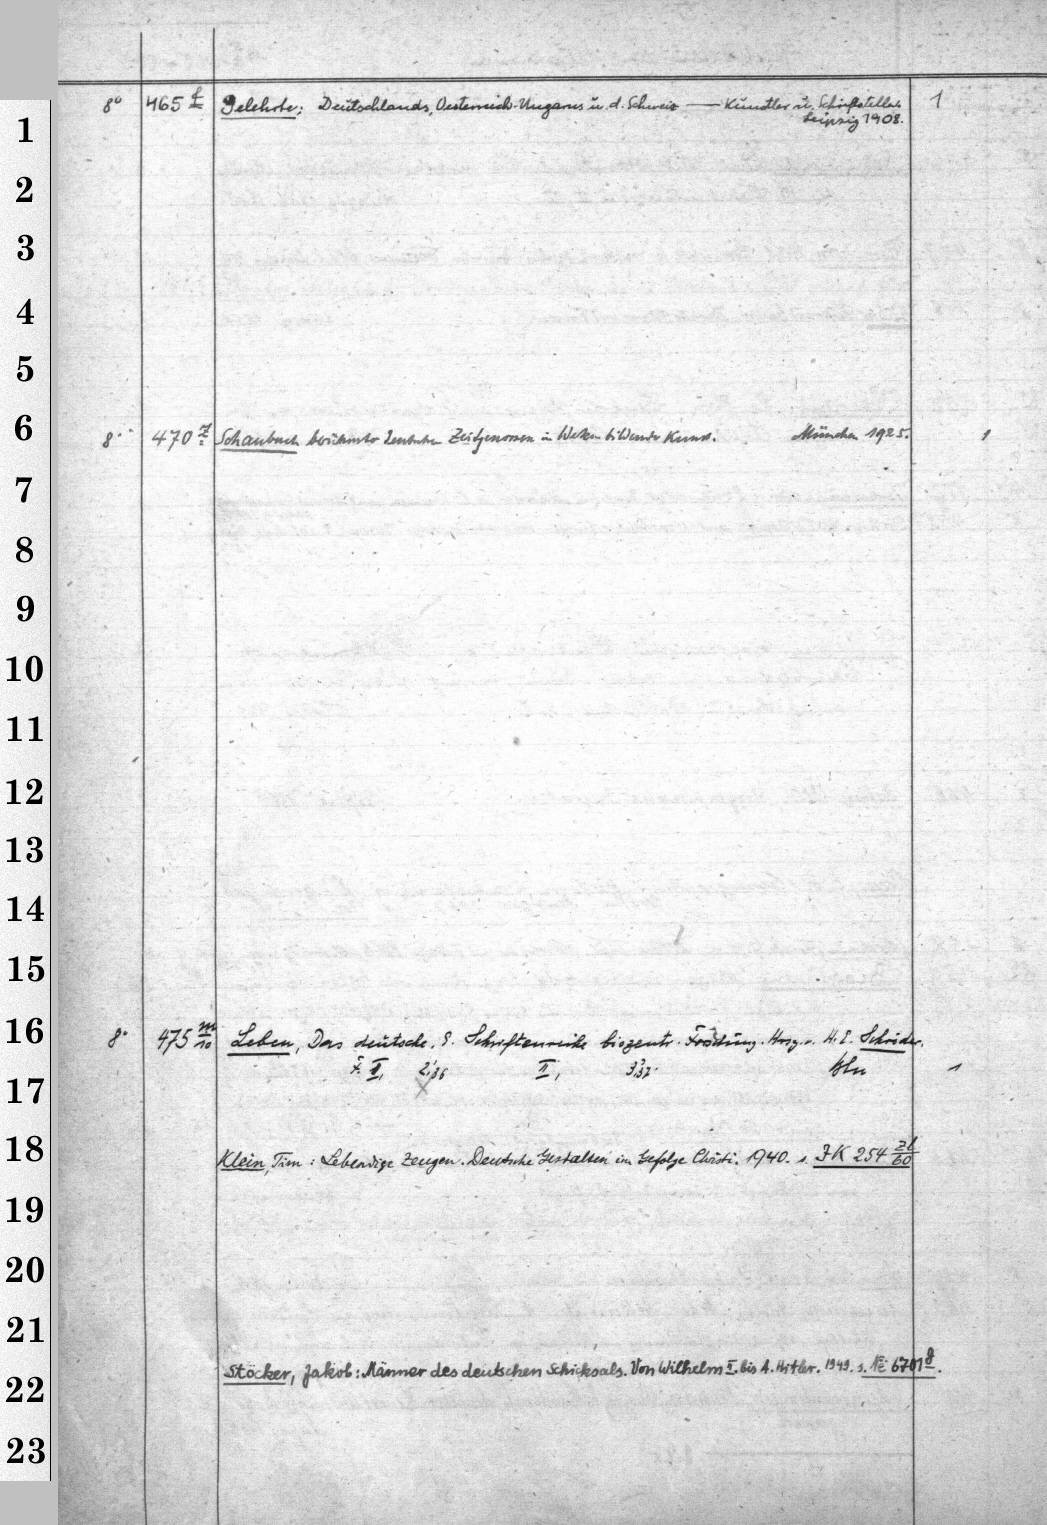 1
2
3
4
5
6
7
8
9
10
11
12
13
14
15
16
17
18
19
20
21
22
23
8° 465 f Gelehrte; Deutschlands, Oesterreich-Ungarns u. d. Schweiz — Künstler u. Schriftsteller 1
Leipzig 1908.
8° 470 Schaubach berühmter Zeitgenossen in Werken bildender Kunst. München 1925. 1
8° 475 m/10 Leben, Das deutsche. E. Schriftenreihe biozentr. Forschung. Hrsg. v. H. E. Schröder.
F. I, 2.'36 II, 3.'37. Bln 1
Klein, Tim: Lebendige Zeugen. Deutsche Gestalten im Gefolge Christi. 1940. s. JK 254 zb/60
Stöcker, Jakob: Männer des deutschen Schicksals. Von Wilhelm II. bis A. Hitler. 1949. s. 6701 d.